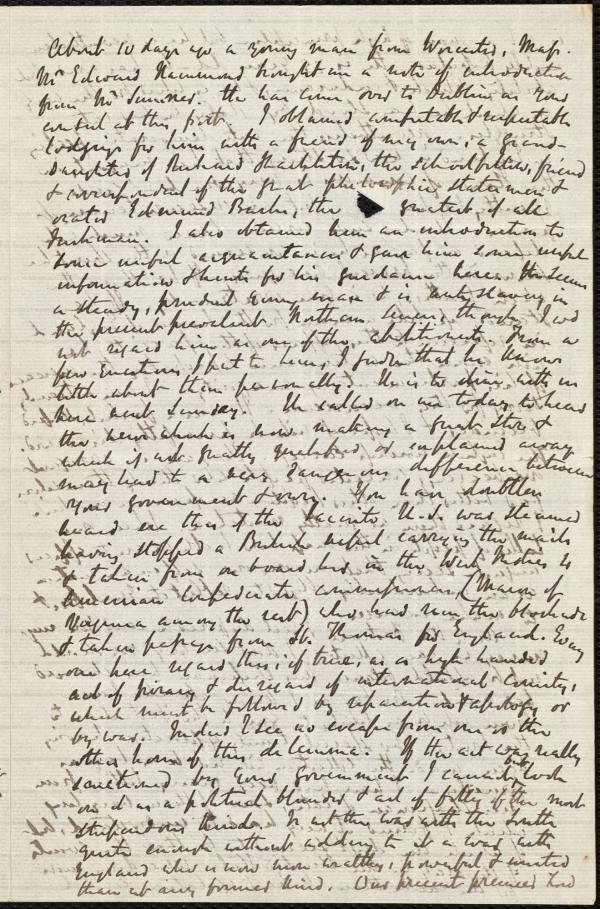 About 10 days ago a young man from Worcester, Mass.
Mr Edward Hammond brought me a note of introduction
from Mr Sumner. He has come over to Dublin as your
consul at this port. I obtained comfortable & respectable
lodgings for him with a friend of my own, a grand-
daughter of Richard Shackleton, the schoolfellow, friend
& correspondent of the great philosophic statesman &
orator Edmund Burke, the greatest of all
Irishmen. I also obtained him an introduction to
some useful acquaintances & gave him some useful
information & hints for his guidance here. He seems
a steady, prudent young man & is antislavery in
the present prevalent Northern sense, though I wd
not regard him as one of the abolitionists. From a
few questions I put to him, I find that he knows
little about them personally. He is to dine with us
here next Sunday. He called on me today to hear
the news which is now making a great stir &
which if not greatly qualified or explained away
may lead to a very dangerous difference between
your government & ours. You have doubtless
heard ere this of the Jacinto U.S. war steamer
having stopped a British vessel carrying the mails
& taken from on board her in the West Indies
American Confederate commissioners (Mason of
Virginia among the rest) who had run the blockade
& taken passage from St. Thomas for England. Every
one here regards this, if true, as a high handed
act of piracy & disregard of international comity,
which must be followed by reparation & apology or
by war. Indeed I see no escape from one or the
other horn of this dilemma. If the act was really
sanctioned by your government I cannot but look
on it as a political blunder & act of folly of the most
stupendous kind. Is not the war with the South
quite enough without adding to it a war with
England who is now more wealthy, powerful & united
than at any former time. Our present premier Lord